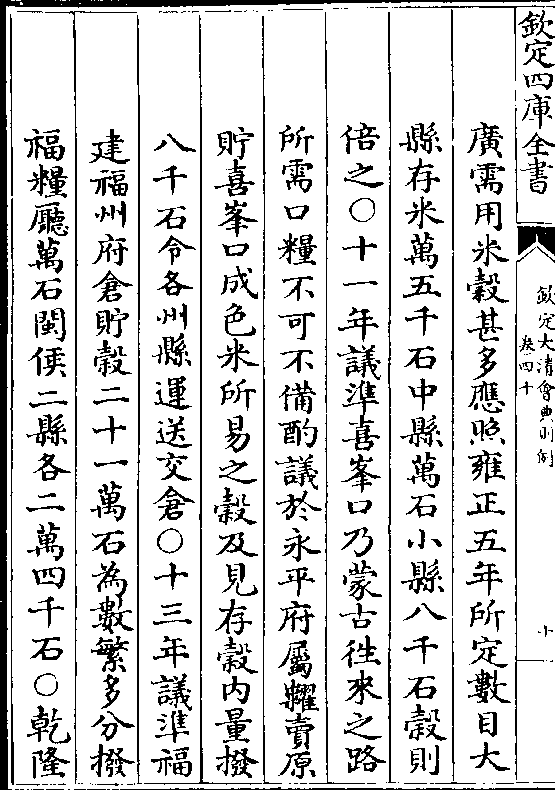 欽定四庫全書
欽定大清會典則例
卷四十
十
廣需用米穀甚多應照雍正五年所定數目大
縣存米萬五千石中縣萬石小縣八千石穀則
倍之○十一年議準喜峯口乃蒙古徃來之路
所需口糧不可不備酌議於永平府屬糶賣原
貯喜峯口成色米所易之穀及見存穀內量撥
八千石令各州縣運送交倉○十三年議準福
建福州府倉貯穀二十一萬石為數繁多分撥
福糧廳萬石閩侯二縣各二萬四千石○乾隆